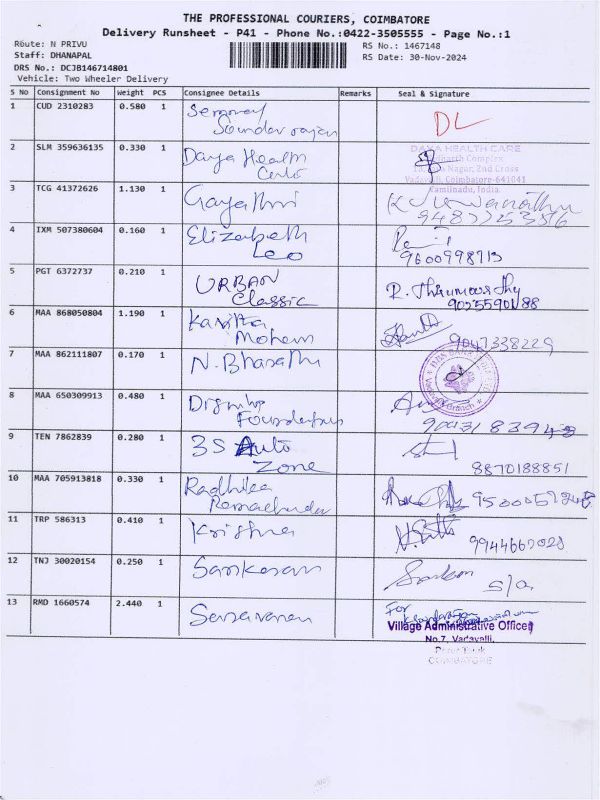 THE PROFESSIONAL COURIERS, COIMBATORE
Delivery Runsheet - P41 - Phone No.:0422-3505555 - Page No.:1
Route: N PRIVU
RS No.: 1467148
Staff: DHANAPAL
RS Date: 30-Nov-2024
DRS No.: DCJB146714801
Vehicle: Two Wheeler Delivery
S No Consignment No Weight PCS Consignee Details Remarks Seal & Signature
1 CUD 2310283 0.580 1
Soundar rajan
DL
2 SLM 359636135 0.330 1 Daya Health
DAYA HEALTH CARE
Complex
Nagar, 2nd Cross
Coimbatore-641041
Tamilnadu, India.
3 TCG 41372626 1.130 1 Gayathri
4 IXM 507380604 0.160 1 Elizabeth
Leo
9600998713
5 PGT 6372737 0.210 1 URBAN
Classic
R. Thirumoorthy
6 MAA 868050804 1.190 1 Kavitha
Mohem
9047338229
7 MAA 862111807 0.170 1 N. Bharathi
Branch
8 MAA 650309913 0.480 1
9 TEN 7862839 0.280 1 3S Auto
Zone
8870188851
10 MAA 705913818 0.330 1 Radhika
11 TRP 586313 0.410 1 Krishna
9944667028
12 TNJ 30020154 0.250 1 Sankaran
s/o
13 RMD 1660574 2.440 1 Saravanan
For
Village Administrative Officer
No.7, Vadavalli,
COIMBATORE